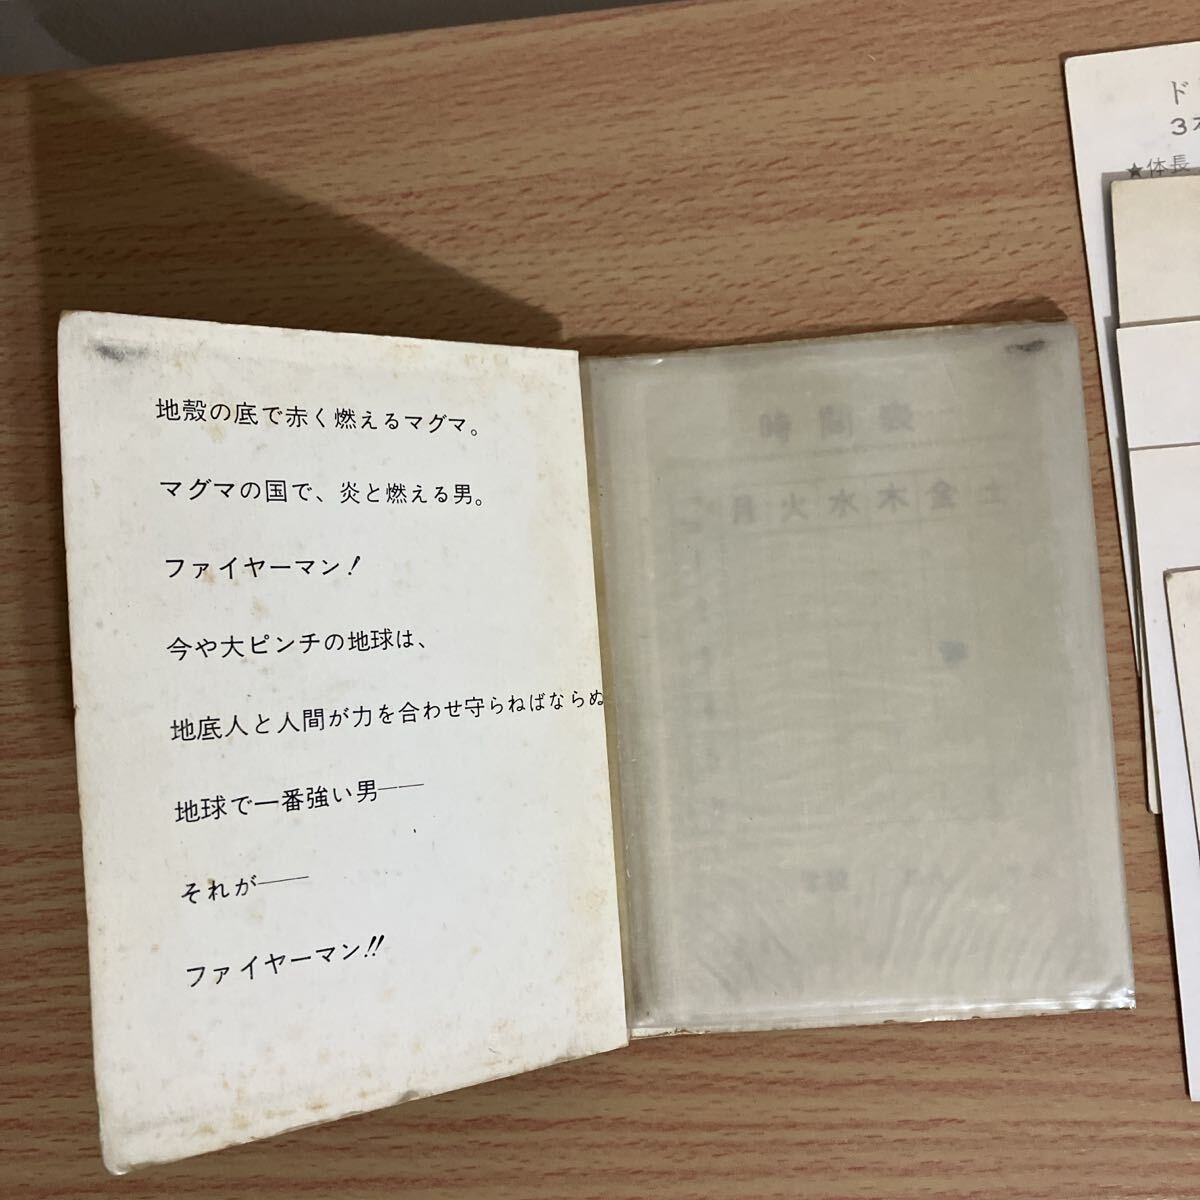 地殻の底で赤く燃えるマグマ。
マグマの国で、炎と燃える男。
ファイヤーマン!
今や大ピンチの地球は、
地底人と人間が力を合わせ守らねばならぬ
地球で一番強い男——
それが——
ファイヤーマン!!
時間表
月火水木金土
ド
3
★体長